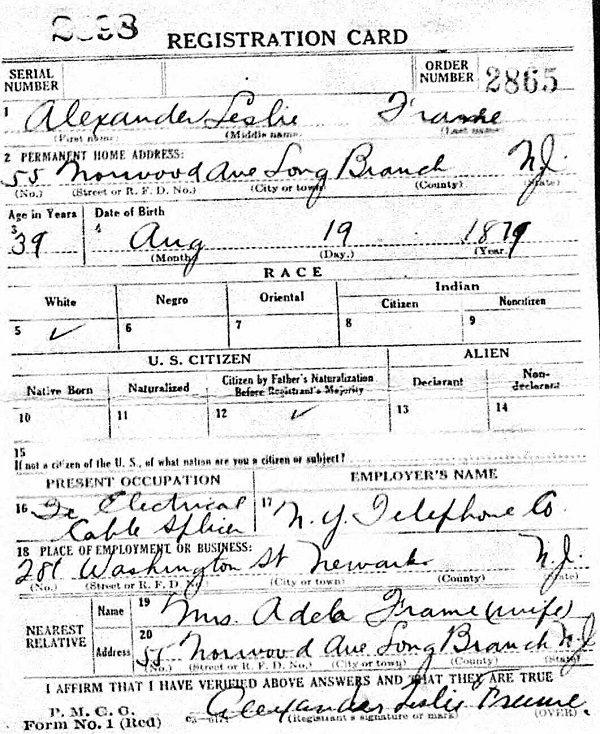 2398
REGISTRATION CARD
SERIAL NUMBER
ORDER NUMBER 2865
1 Alexander Leslie Frame
(First name) (Middle name) (Last name)
2 PERMANENT HOME ADDRESS:
55 Norwood Ave Long Branch N.J.
(No.) (Street or R. F. D. No.) (City or town) (County) (State)
Age in Years Date of Birth
3 39 4 Aug 19 1879
(Month) (Day.) (Year.)
RACE
White Negro Oriental Indian
Citizen Noncitizen
5 ✓ 6 7 8 9
U. S. CITIZEN ALIEN
Native Born Naturalized Citizen by Father's Naturalization Before Registrant's Majority Declarant Non-declarant
10 11 12 ✓ 13 14
15
If not a citizen of the U. S., of what nation are you a citizen or subject?
PRESENT OCCUPATION EMPLOYER'S NAME
16 Electrical 17 N. Y. Telephone Co.
Cable Splicer
18 PLACE OF EMPLOYMENT OR BUSINESS:
281 Washington St Newark N.J.
(No.) (Street or R. F. D. No.) (City or town) (County) (State)
NEAREST RELATIVE
Name 19 Mrs. Adela Frame (wife)
Address 20 55 Norwood Ave Long Branch N.J.
(No.) (Street or R. F. D. No.) (City or town) (County) (State)
I AFFIRM THAT I HAVE VERIFIED ABOVE ANSWERS AND THAT THEY ARE TRUE
P. M. G. O.
Form No. 1 (Red) Alexander Leslie Frame
(Registrant's signature or mark) (OVER)